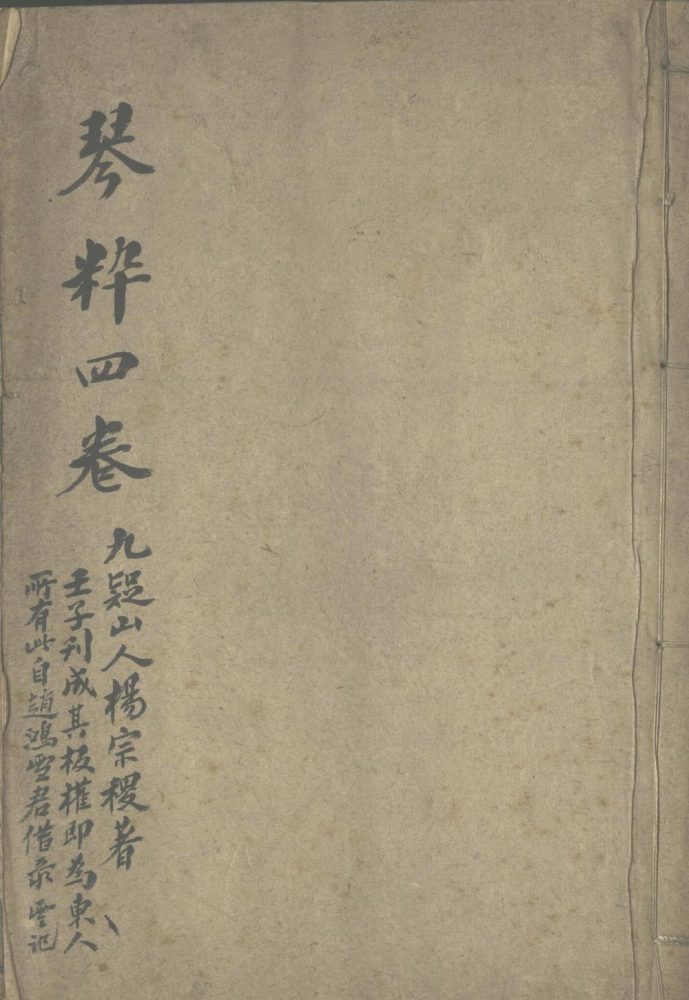 琴粹四卷
九疑山人楊宗稷著
壬子刊成其板權即為東人
所有此自趙鴻雪君借录雪記